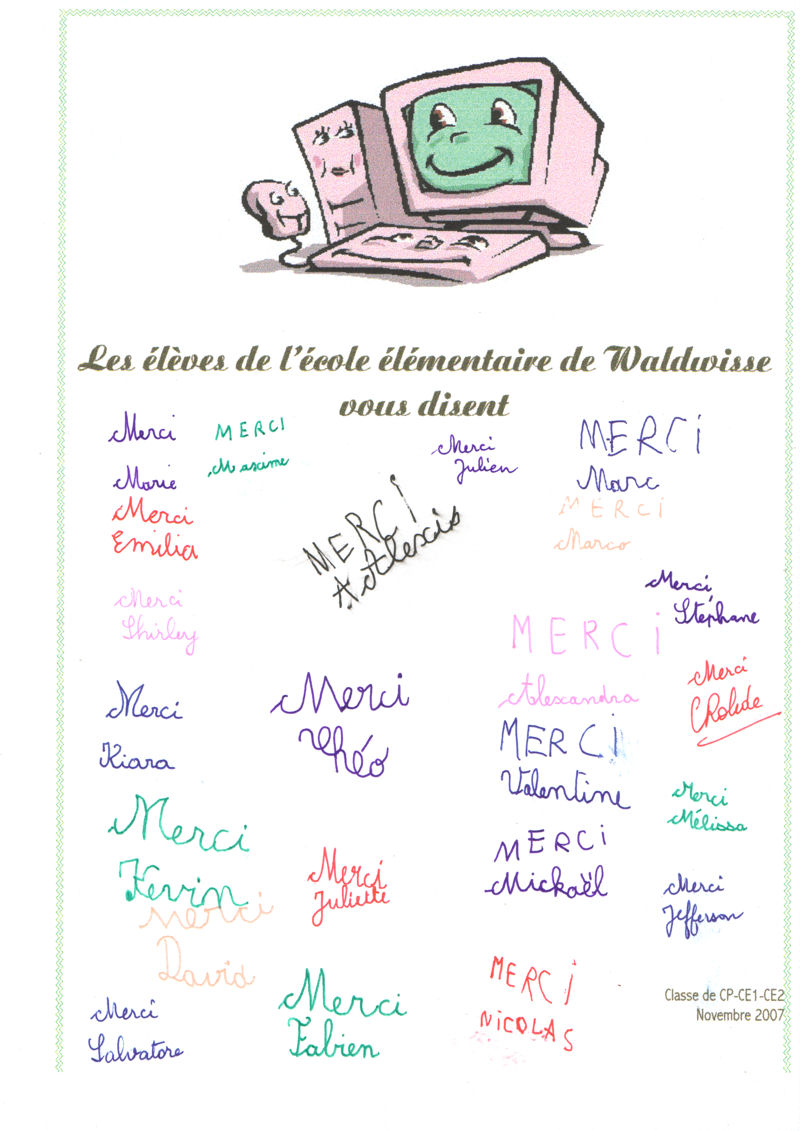 Les élèves de l'école élémentaire de Waldwisse
vous disent
Merci
Marie
MERCI
Maxime
Merci
Julien
MERCi
Marc
Merci
Emilia
MERCi
A Alexis
MERCi
Marco
Merci
Shirley
Merci
Stéphane
MERCi
Alexandra
Merci
Merci
Kiara
Merci
Théo
MERCi
Valentine
Merci
Mélissa
Merci
Kevin
Merci
Juliette
MERCi
Mickaël
Merci
Jefferson
Merci
David
Merci
Salvatore
Merci
Fabien
MERCi
NiCOLAS
Classe de CP-CE1-CE2
Novembre 2007